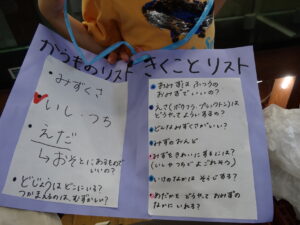 かうものリスト
・みずくさ
いし・つち
・えだ
↳おそとにあるものでいいの?
・どじょうはどこにいる?
つかまえるのは、むずかしい?
きくことリスト
おみずは ふつうの
おみずでいいの?
えさ(ボウフラ、プランクトン)は
どうやって よういするの?
どんなみずくさがいい?
みずのおんど
みずをきれいにするには?
(いしやつちでよごれそう)
いけのなかは そうじする?
めだかを どうやって おみずの
なかにいれる?